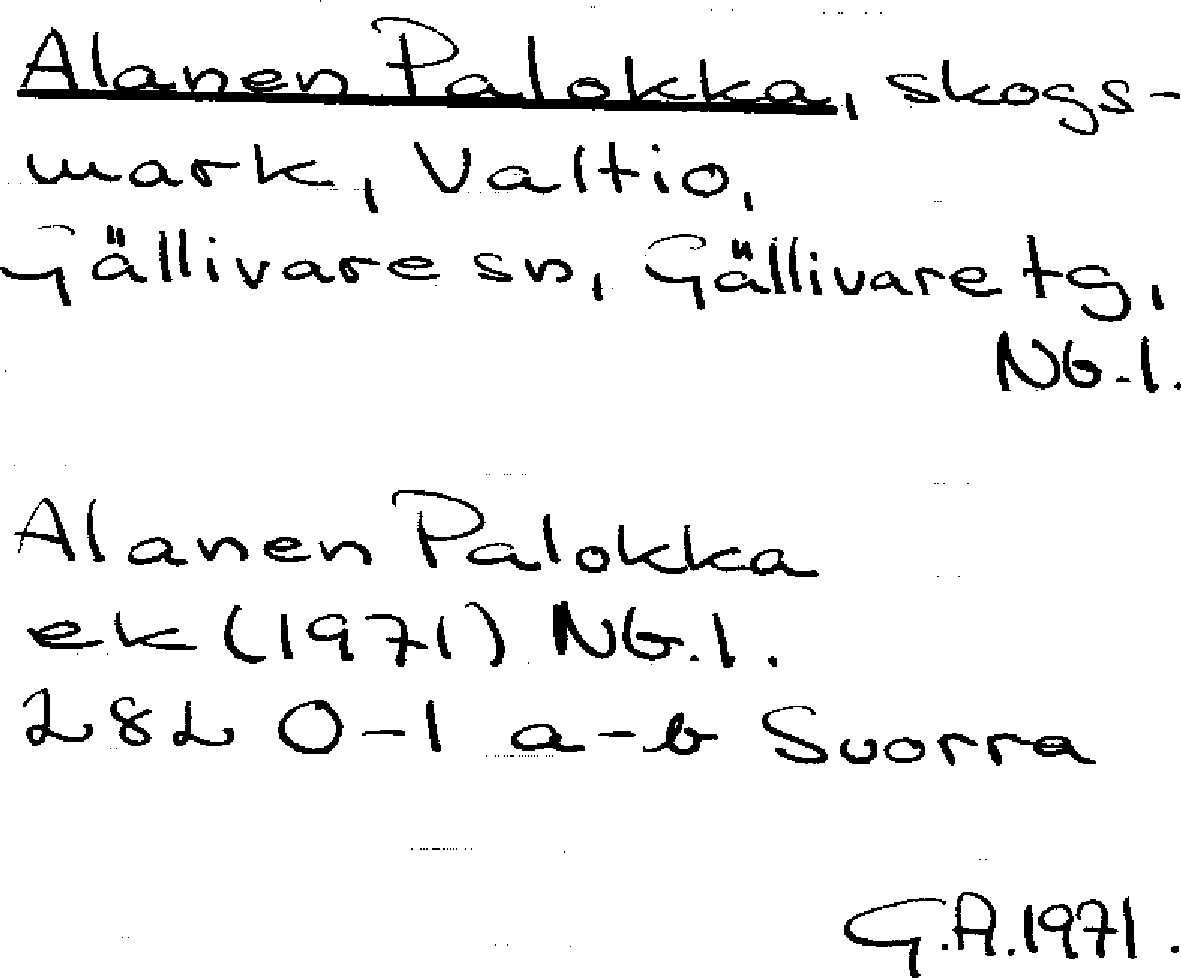 Alanen Palokka, skogs-
mark, Valtio,
Gällivare sn, Gällivare tg,
NG.1.
Alanen Palokka
ek (1971) NG.1.
28L 0-1 a-b Suorra
G.A. 1971.